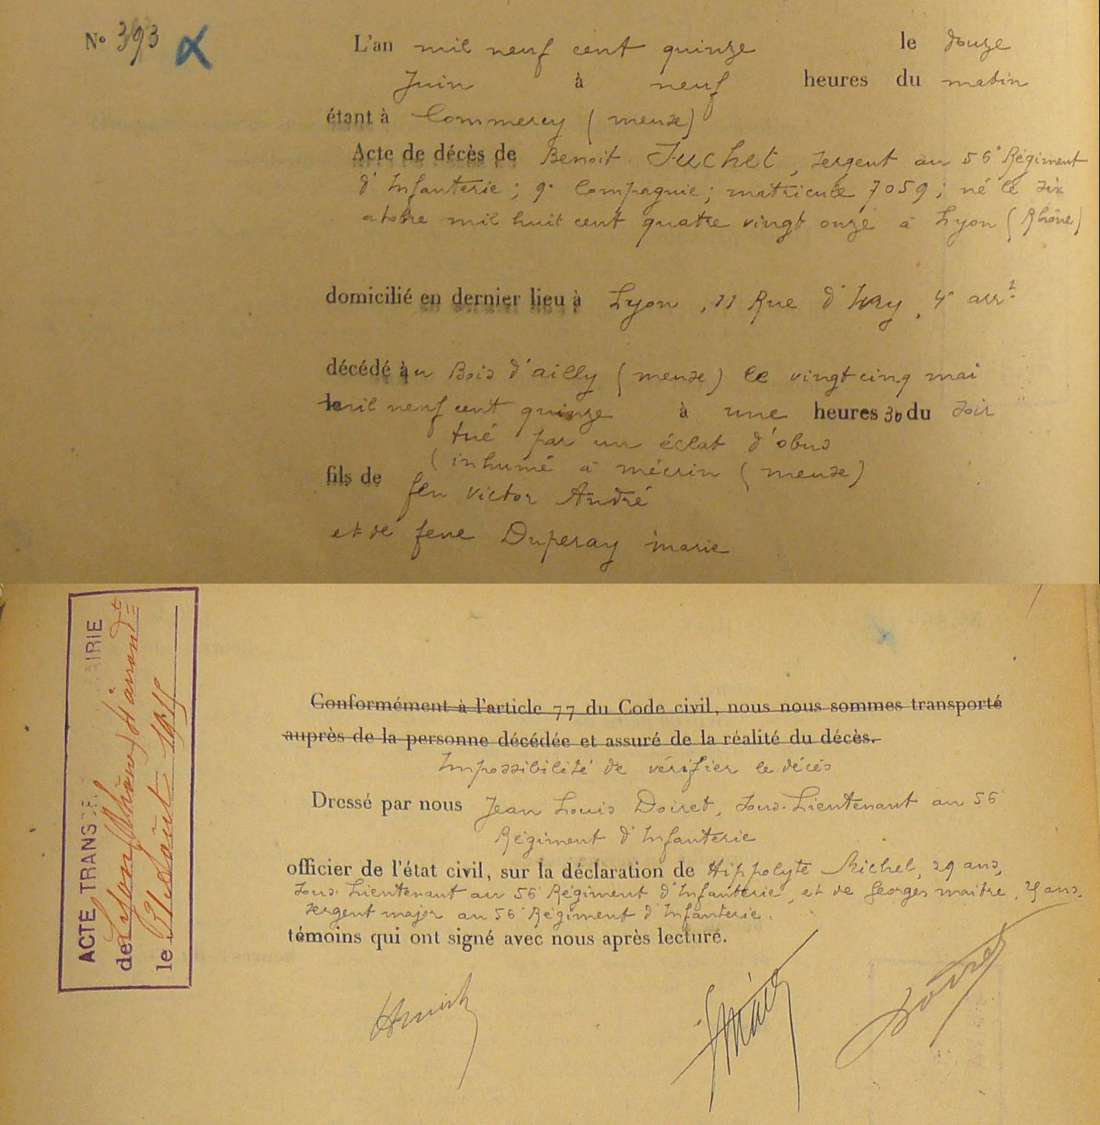 N° 393 α
L'an mil neuf cent quinze le douze
Juin à neuf heures du matin
étant à Commercy (meuse)
Acte de décès de Benoit Juchet, sergent au 56e Régiment
d'Infanterie; 9e Compagnie; matricule 7059; né le six
octobre mil huit cent quatre vingt onze à Lyon (Rhône)
domicilié en dernier lieu à Lyon, 11 Rue d'Ivry, 4e arrt
décédé au Bois d'ailly (meuse) le vingt cinq mai
le mil neuf cent quinze à une heures 30 du soir
tué par un éclat d'obus
(inhumé à mécrin (meuse)
fils de feu Victor André
et de feue Duperay marie
ACTE TRANS MAIRIE
de Lyon (Rhône) 4e arrondt
le août 1915
Conformément à l'article 77 du Code civil, nous nous sommes transporté
auprès de la personne décédée et assuré de la réalité du décès.
Impossibilité de vérifier le décès
Dressé par nous Jean Louis Doiret, Sous-Lieutenant au 56
Régiment d'Infanterie
officier de l'état civil, sur la déclaration de Hippolyte Richet, 29 ans,
sous-Lieutenant au 56e Régiment d'Infanterie, et de Georges maitre, ans,
sergent major au 56e Régiment d'Infanterie.
témoins qui ont signé avec nous après lecture.